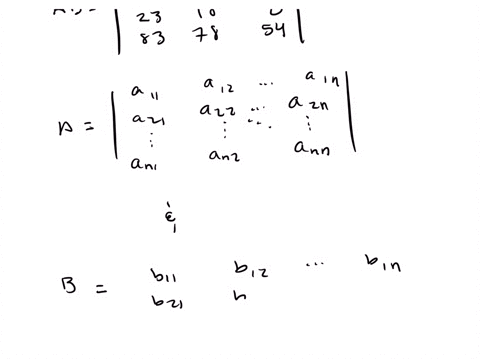 23
83 78 54
A = | a11 a12 ... a1n |
a21 a22 ... a2n
⋮ ⋮ ⋱ ⋮
an1 an2 ann
&
B = b11 b12 ... b1n
b21